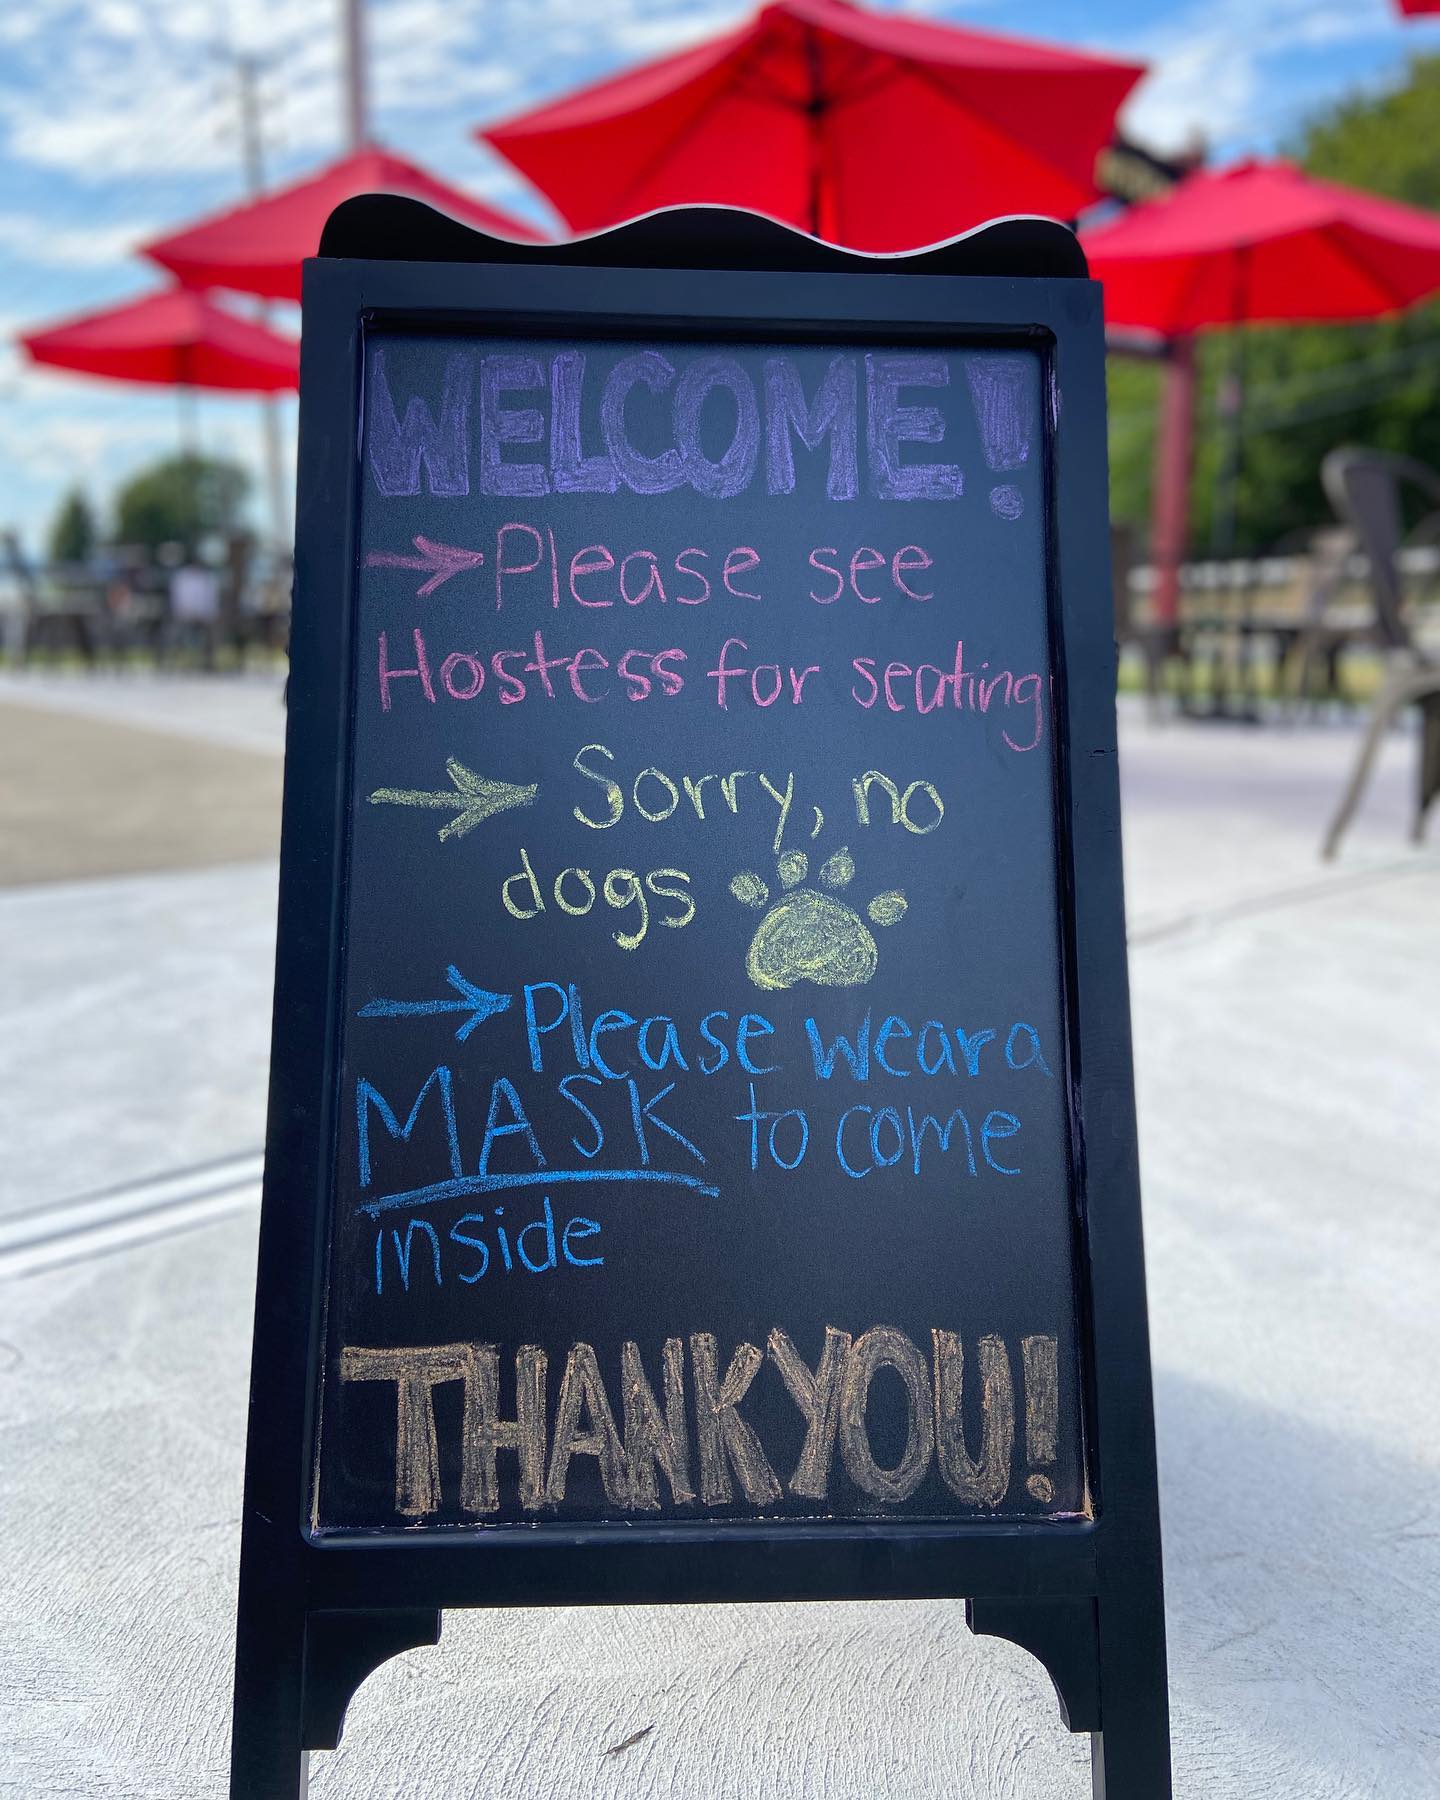 WELCOME!
→ Please see
Hostess for seating
→ Sorry, no
dogs
→ Please wear a
MASK to come
inside
THANK YOU!